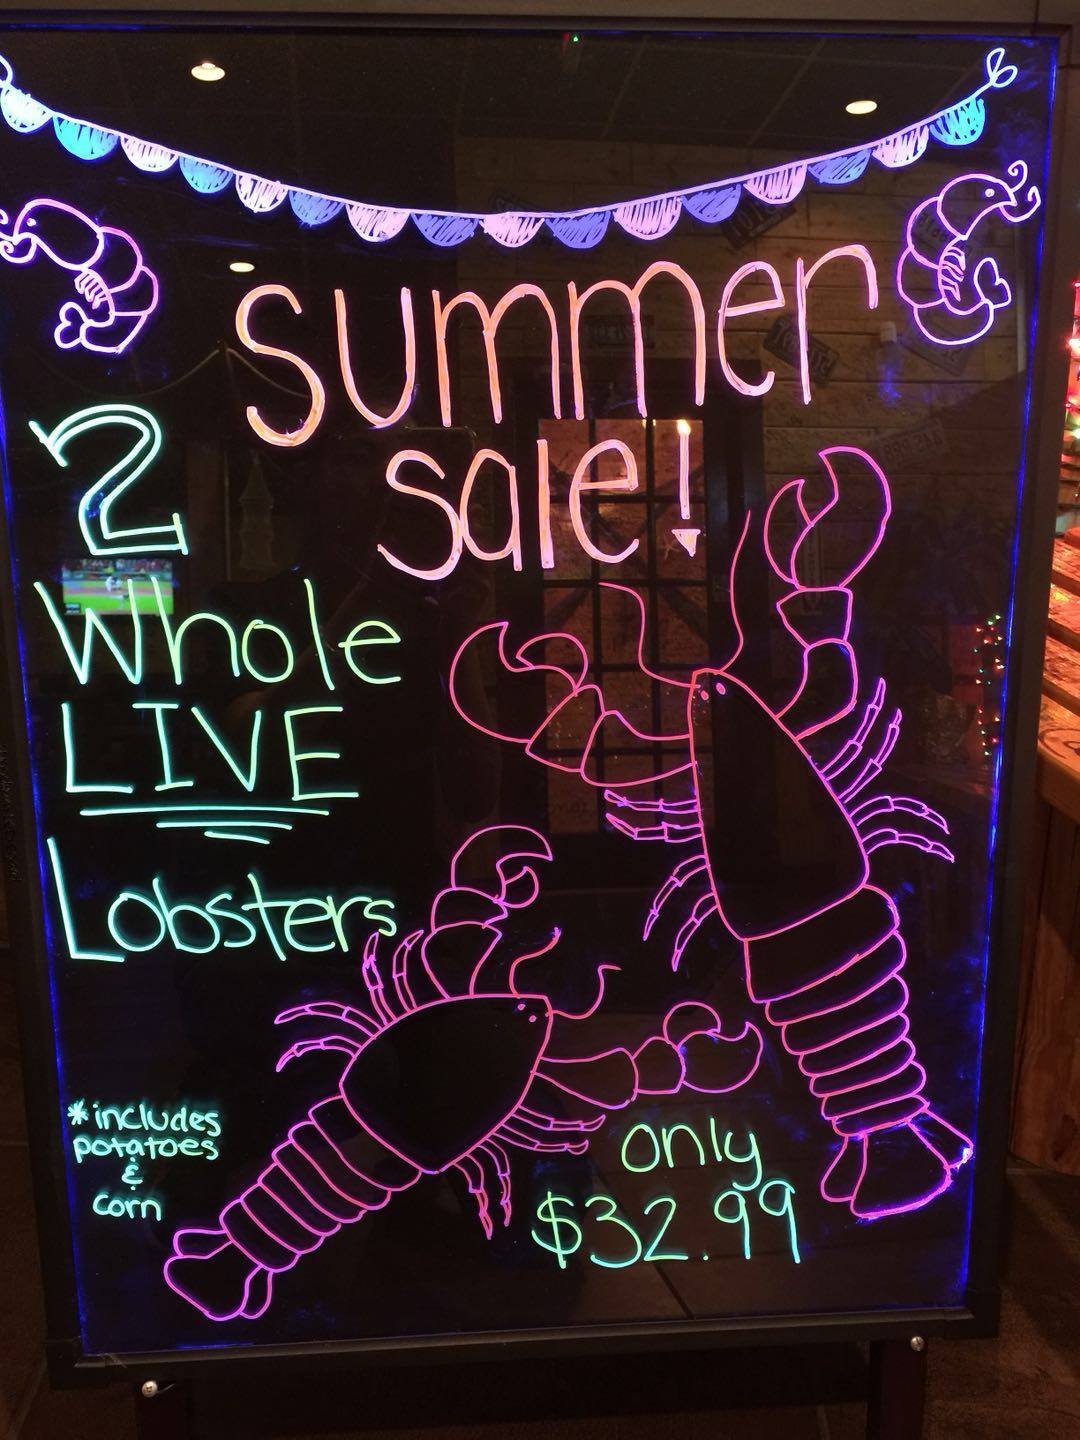 summer
sale!
2
Whole
LIVE
Lobsters
*includes
potatoes
&
corn
only
$32.99